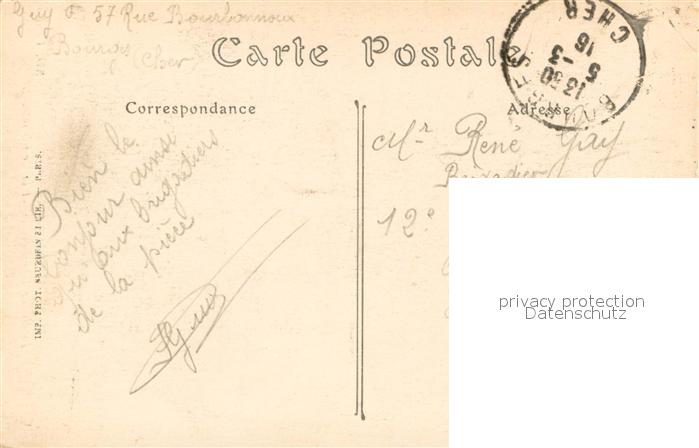 Guy 57 Rue Bourbonnoux
Bourges (Cher)
Carte Postale
BOURGES
13 30
5 -3
16
CHER
Correspondance
Adresse
Bien le
bonjour ainsi
qu'aux brigadiers
de la pièce
Mr René Gay
Brigadier
12e
IMP. PHOT. NEURDEIN ET CIE. — PARIS.
privacy protection
Datenschutz